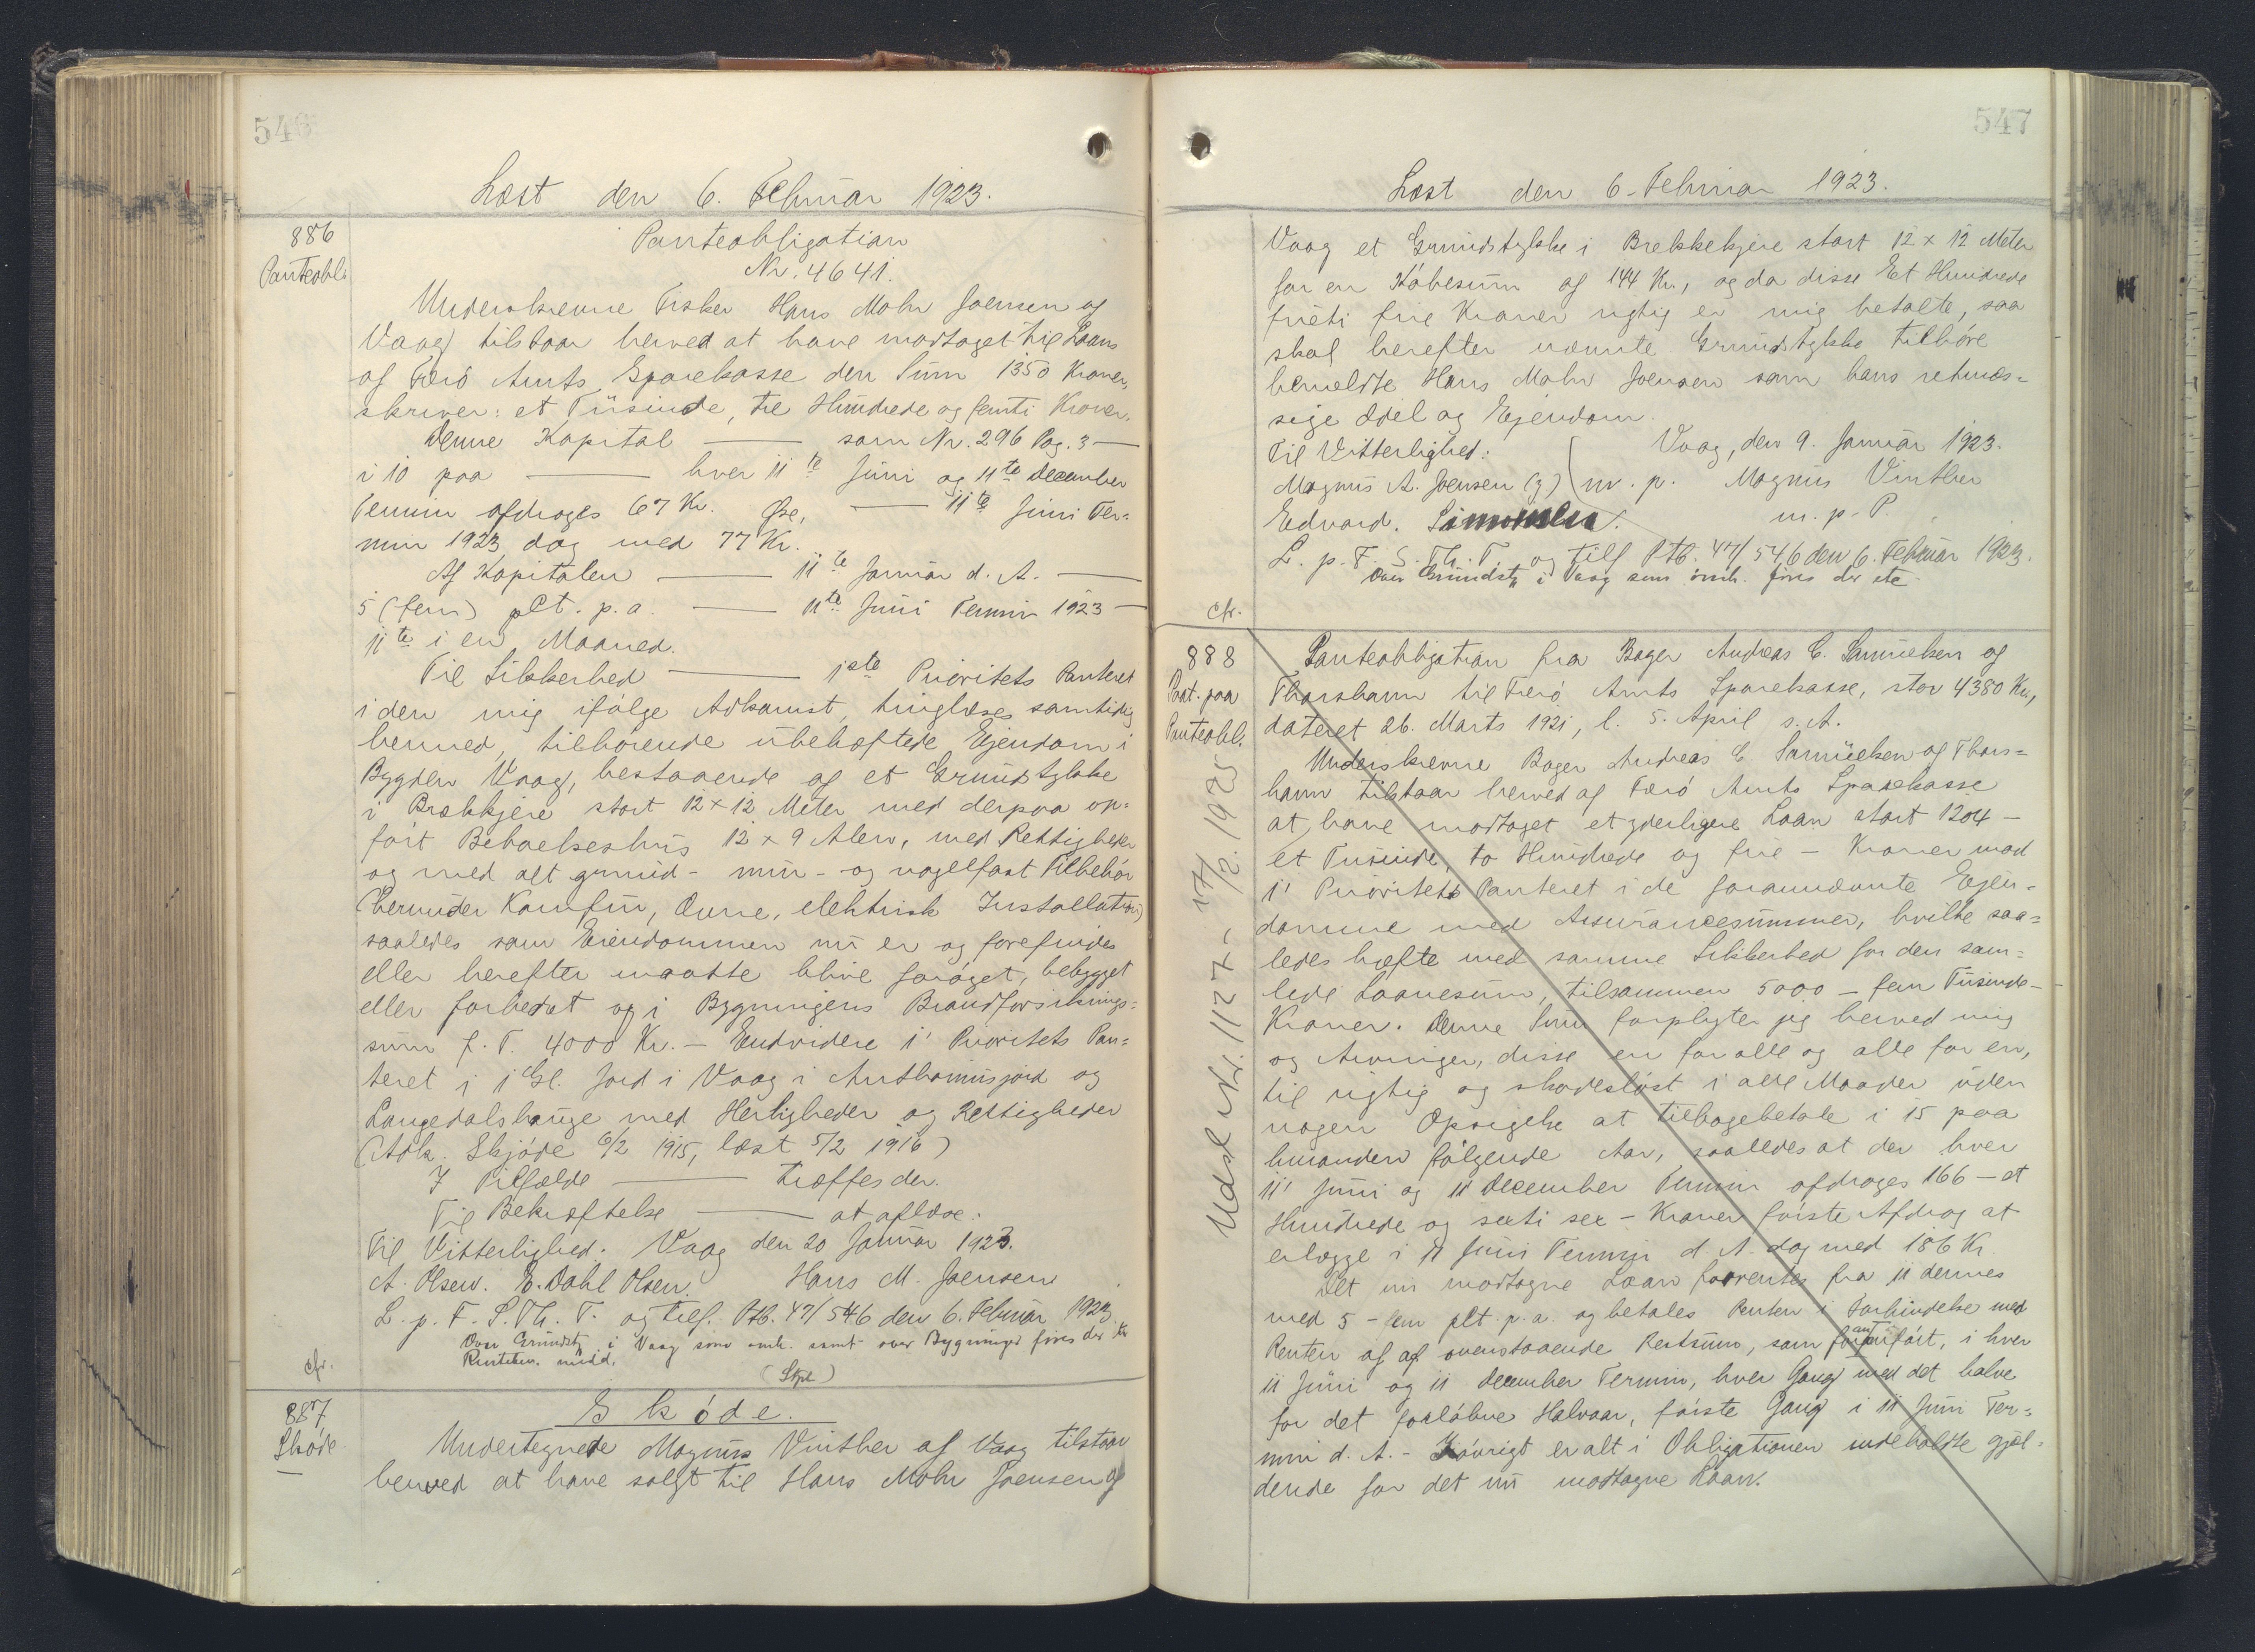 546
Læst den 6. Februar 1923.
886
Panteobl.
Panteobligation
Nr. 4641.
Underskrevne Fisker Hans Mohr Joensen af
Vaag tilstaar herved at have modtaget til Laans
af Færø Amts Sparekasse den Sum 1350 Kroner,
skriver: et Tusinde, tre Hundrede og femti Kroner.
Denne Kapital — som Nr. 296 Pag. 3 —
i 10 paa — hver 11te Juni og 11te December
Termin afdrages 67 Kr. Øre, — 11te Juni Ter=
min 1923 dog med 77 Kr.
Af Kapitalen — 11te Januar d. A. —
5 (fem) pCt. p. a. — 11te Juni Termin 1923 —
11te i en Maaned.
Til Sikkerhed — 1ste Prioritets Panteret
i den mig ifølge Adkomst, tinglæses samtidig
hermed, tilhørende ubehæftede Ejendom i
Bygden Vaag, bestaaende af et Grundstykke
i Brekkjere stort 12 x 12 Meter med derpaa op=
ført Beboelseshus 12 x 9 Alen, med Rettigheder
og med alt grund- mur- og nagelfast Tilbehør
(herunder Komfur, Ovne, elektrisk Installation)
saaledes som Eiendommen nu er og forefindes
eller herefter maatte blive forøget, bebygget
eller forbedret og i Bygningens Brandforsikrings=
sum f. T. 4000 Kr. — Endvidere 1' Prioritets Pan=
teret i 1 Gl. Jord i Vaag i Anthoniusjord og
Langedalshauge med Herligheder og Rettigheder
(Adk. Skjøde 6/2 1915, læst 5/2 1916)
I Tilfælde — træffes der.
Til Bekræftelse — at aflæse.
Til Vitterlighed. Vaag den 20 Januar 1923.
A. Olsen. E. Dahl Olsen. Hans M. Joensen
L. p. F. S. Th. T. og tilf. Ptb. 47/546 den 6. Februar 1923.
Over Grundst. i Vaag som omh. samt over Bygninger føres der ktr
cfr.
(Stpl)
887
Skøde
Skøde.
Undertegnede Magnus Vinther af Vaag tilstaar
herved at have solgt til Hans Mohr Joensen af
547
Læst den 6. Februar 1923.
Vaag et Grundstykke i Brekkekjere stort 12 x 12 Meter
for en Købesum af 144 Kr., og da disse Et Hundrede
firti fire Kroner rigtig er mig betalte, saa
skal herefter nævnte Grundstykke tilhøre
bemeldte Hans Mohr Joensen som hans retmæs=
sige Odel og Ejendom.
Til Vitterlighed: Vaag, den 9. Januar 1923.
Magnus A. Joensen (g) m. p. Magnus Vinther
Edvard. Simonsen. m. p. P.
L. p. F. S. Th. T. og tilf Ptb. 47/546 den 6. Februar 1923.
Over Grundst. i Vaag som omh. føres der ete
cfr.
888
Paat. paa
Panteobl.
Panteobligation fra Bager Andreas C. Samuelsen af
Thorshavn til Færø Amts Sparekasse, stor 4380 Kr.,
dateret 26. Marts 1921, l. 5. April s. A.
Underskrevne Bager Andreas C. Samuelsen af Thors=
havn tilstaar herved af Færø Amts Sparekasse
at have modtaget et yderligere Laan stort 1204 —
et Tusinde, to Hundrede og fire — Kroner mod
1' Prioritets Panteret i de forannævnte Ejen=
domme med Assurancesummer, hvilke saa=
ledes hæfte med samme Sikkerhed for den sam=
lede Laanesum, tilsammen 5000 — fem Tusinde —
Kroner. Denne Sum forpligter jeg herved mig
og Arvinger, disse en for alle og alle for en,
til rigtig og skadesløst i alle Maader uden
nogen Opsigelse at tilbagebetale i 15 paa
hinanden følgende Aar, saaledes at der hver
11' Juni og 11 December Termin afdrages 166 — et
Hundrede og sexti sex — Kroner første Afdrag at
erlægge i 11 Juni Termin d. A. dog med 186 Kr.
Det nu modtagne Laan forrentes fra 11 dennes
med 5 — fem pCt. p. a. og betales Renten i Forbindelse med
Renten af af ovenstaaende Restsum, som foranført, i hver
11 Juni og 11 December Termin, hver Gang med det halve
for det forløbne Halvaar, første Gang i 11 Juni Ter=
min d. A. — Iøvrigt er alt i Obligationen indeholdte gjæl=
dende for det nu modtagne Laan.
Udsl. Nr. 1127 — 17/2. 1925